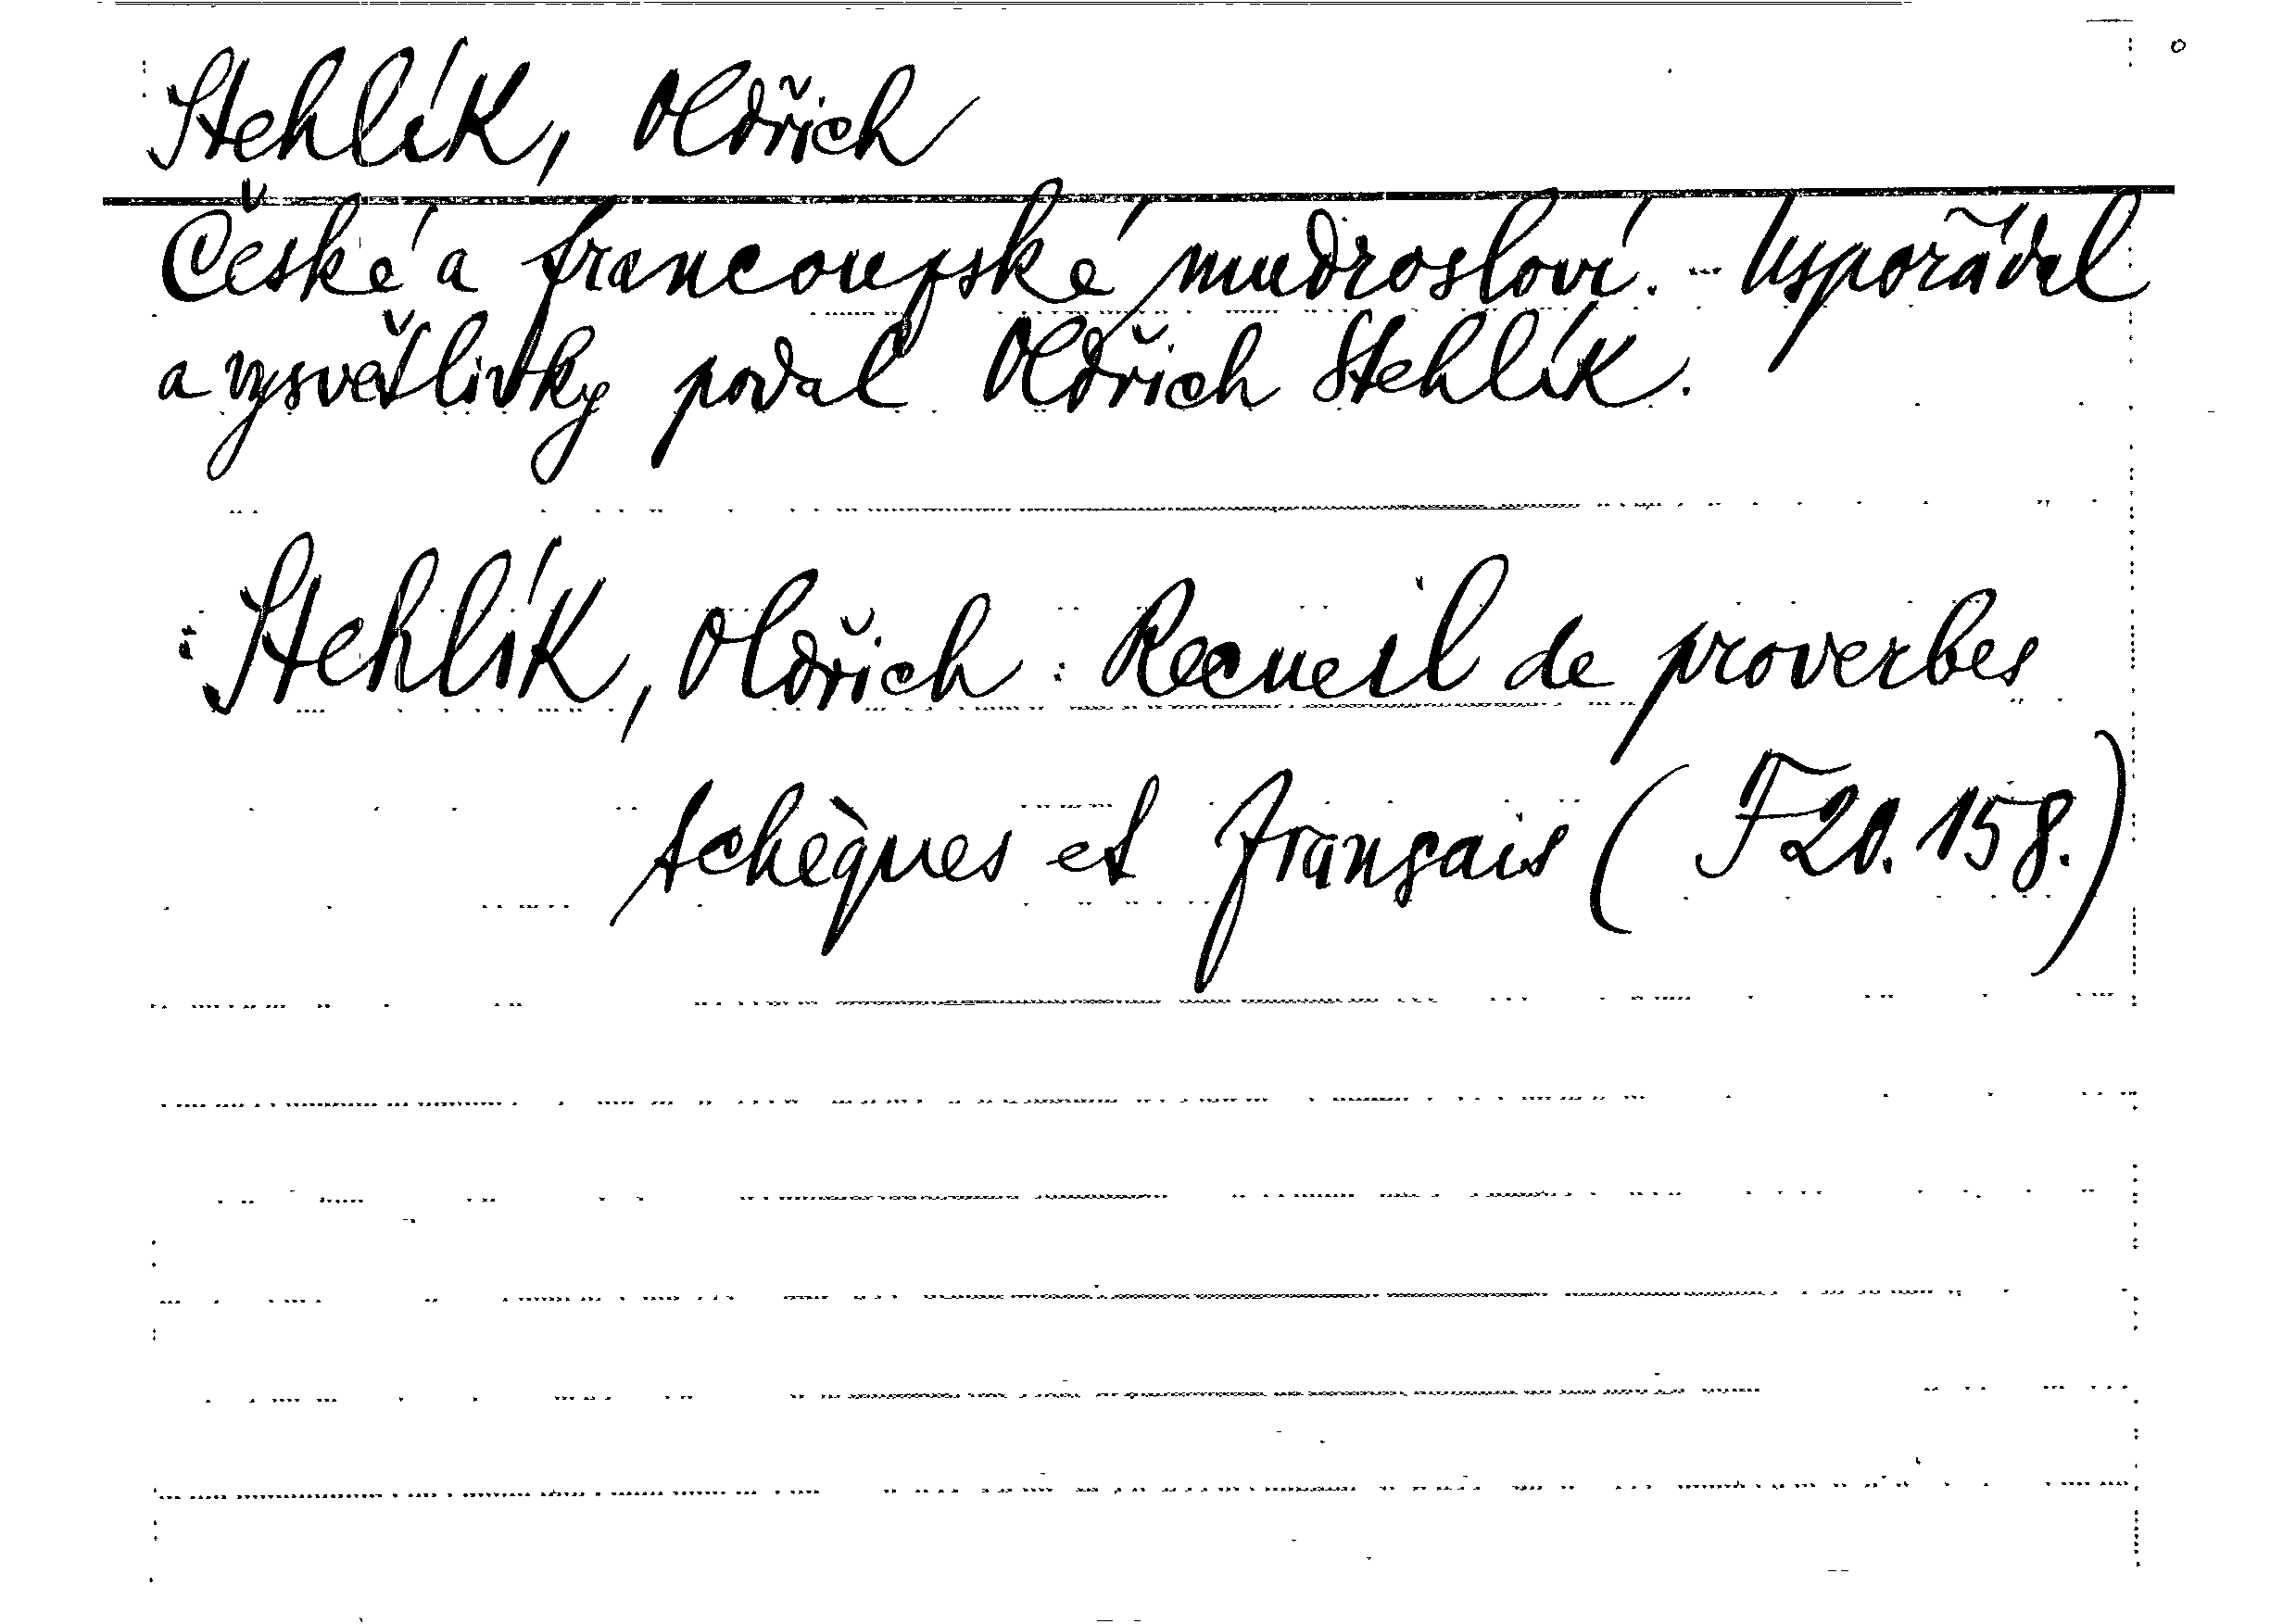 Stehlík, Oldřich
České a francouzské mudrosloví. - Uspořádal
a vysvětlivky podal Oldřich Stehlík.
: Stehlík, Oldřich : Recueil de proverbes
tchèques et français ( F20.158.)